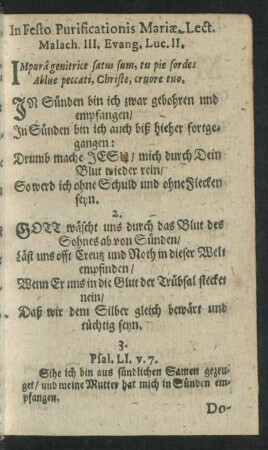 In Festo Purificationis Mariæ. Lect.
Malach. III, Evang. Luc. II.
IMpurâ genitrice satus sum, tu pie sordes
Ablue peccati, Christe, cruore tuo.
JN Sünden bin ich zwar gebohren und
empfangen/
In Sünden bin ich auch biß hieher fortge-
gangen:
Drumb mache JESU/ mich durch Dein
Blut wieder rein/
So werd ich ohne Schuld und ohne Flecken
seyn.
2.
GOTT wäscht uns durch das Blut des
Sohnes ab von Sünden/
Läst uns offt Creutz und Noth in dieser Welt
empfinden/
Wenn Er uns in die Glut der Trübsal stecket
nein/
Daß wir dem Silber gleich bewärt und
tüchtig seyn.
3.
Psal. LI. v. 7.
Sihe ich bin aus sündlichen Samen gezeu-
get/ und meine Mutter hat mich in Sünden em-
pfangen.
Do-